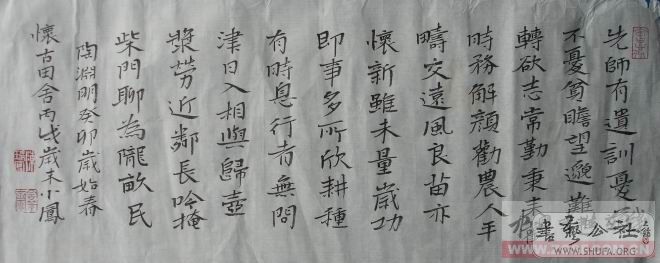 先師有遺訓憂
不憂貧瞻望邈難
轉欲志常勤秉耒
時務解顏勸農人平
疇交遠風良苗亦
懷新雖未量歲功
即事多所欣耕種
有時息行者無問
津日入相與歸壺
漿勞近鄰長吟掩
柴門聊為隴畝民
陶淵明癸卯歲始春
懷古田舍丙戌歲末小鳳
書藝公社
WWW.SHUFA.ORG